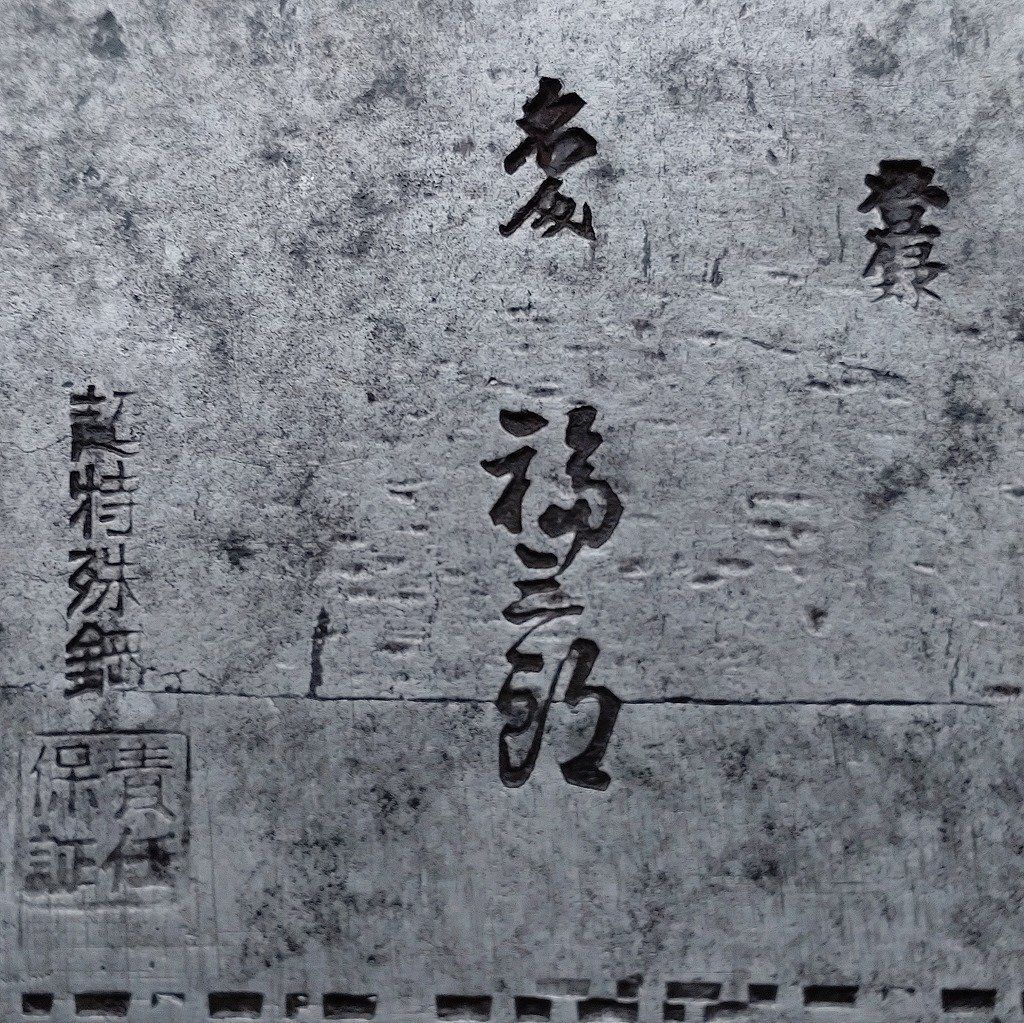 登録
福三郎
超特殊鋼
責任
保証